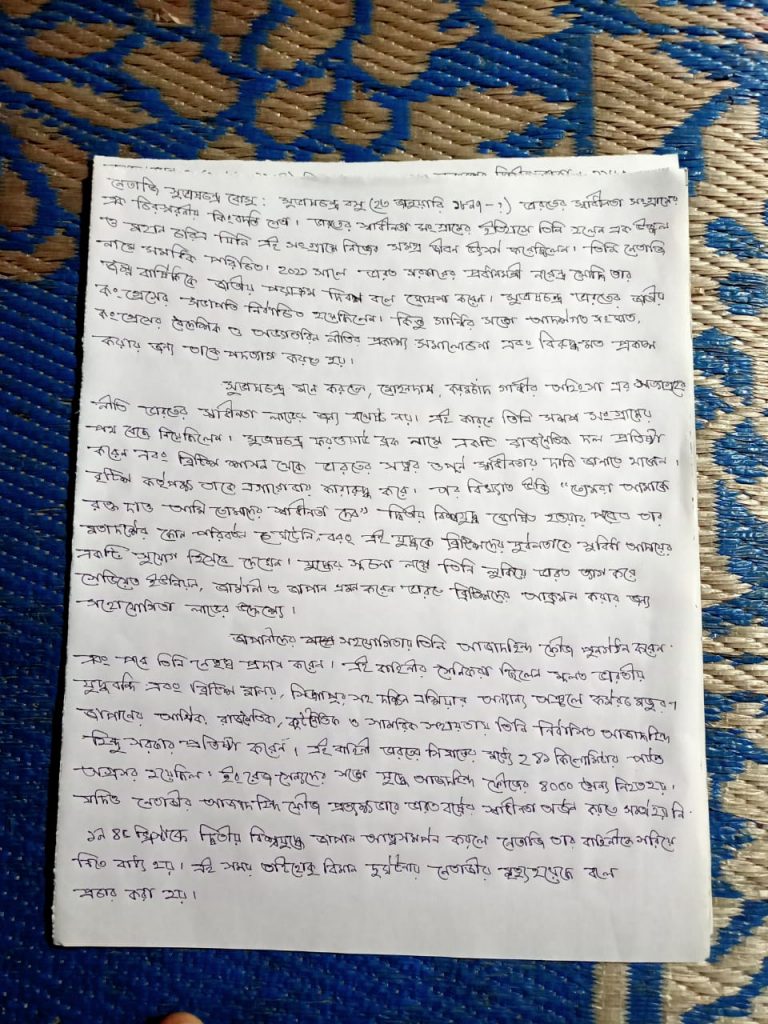 নেতাজি সুভাষচন্দ্র বোস : সুভাষচন্দ্র বসু (২৩ জানুয়ারি ১৮৯৭ - ?) ভারতের স্বাধীনতা সংগ্রামের
এক চিরস্মরণীয় কিংবদন্তি নেতা। ভারতের স্বাধীনতা সংগ্রামের ইতিহাসে তিনি হলেন এক উজ্জ্বল
ও মহান চরিত্র যিনি এই সংগ্রামে নিজের সমগ্র জীবন উৎসর্গ করেছিলেন। তিনি নেতাজি
নামে সমধিক পরিচিত। ২০২১ সালে ভারত সরকারের প্রধানমন্ত্রী নরেন্দ্র মোদি তার
জন্ম বার্ষিকীকে জাতীয় পরাক্রম দিবস বলে ঘোষণা করেন। সুভাষচন্দ্র ভারতের জাতীয়
কংগ্রেসের সভাপতি নির্বাচিত হয়েছিলেন। কিন্তু গান্ধির সঙ্গে আদর্শগত সংঘাত,
কংগ্রেসের বৈদেশিক ও অভ্যন্তরিন নীতির প্রকাশ্য সমালোচনা এবং বিরুদ্ধমত প্রকাশ
করার জন্য তাকে পদত্যাগ করতে হয়।
সুভাষচন্দ্র মনে করতেন, মোহনদাস, করমচাঁদ গান্ধীর অহিংসা এর সত্যাগ্রহের
নীতি ভারতের স্বাধীনতা লাভের জন্য যথেষ্ট নয়। এই কারণে তিনি সশস্ত্র সংগ্রামের
পথ বেছে নিয়েছিলেন। সুভাষচন্দ্র ফরওয়ার্ড ব্লক নামে একটি রাজনৈতিক দল প্রতিষ্ঠা
করেন এবং ব্রিটিশ শাসন থেকে ভারতের সত্বর ও পূর্ণ স্বাধীনতার দাবি জানাতে থাকেন।
বৃটিশ কর্তৃপক্ষ তাকে এগারোবার কারারুদ্ধ করে। তার বিখ্যাত উক্তি "তোমরা আমাকে
রক্ত দাও আমি তোমাদের স্বাধীনতা দেব" দ্বিতীয় বিশ্বযুদ্ধ ঘোষিত হওয়ার পরেও তার
মতাদর্শের কোন পরিবর্তন ঘটেনি, বরং এই যুদ্ধকে ব্রিটিশদের দুর্বলতাকে সুবিধা আদায়ের
একটি সুযোগ হিসেবে দেখেন। যুদ্ধের সূচনা লগ্নে তিনি লুকিয়ে ভারত ত্যাগ করে
সোভিয়েত ইউনিয়ন, জার্মানী ও জাপান ভ্রমণ করেন ভারতে ব্রিটিশদের আক্রমন করার জন্য
সহযোগিতা লাভের উদ্দেশ্যে।
জাপানীদের সহযোগিতায় তিনি আজাদহিন্দ ফৌজ পুনর্গঠন করেন
এবং পরে তিনি নেতৃত্ব প্রদান করেন। এই বাহিনীর সৈনিকরা ছিলেন মূলত ভারতীয়
যুদ্ধবন্দি এবং ব্রিটিশ মালয়, সিঙ্গাপুর সহ দক্ষিণ এশিয়ার অন্যান্য অঞ্চলে কর্মরত মজুর।
জাপানের আর্থিক, রাজনৈতিক, কূটনৈতিক ও সামরিক সহায়তায় তিনি নির্বাসিত আজাদহিন্দ
হিন্দু সরকার প্রতিষ্ঠা করেন। এই বাহিনী ভারতের সীমান্তের মধ্যে ২৪১ কিলোমিটার পর্যন্ত
অগ্রসর হয়েছিল। ইংরেজ সেনাদের সঙ্গে যুদ্ধে আজাদহিন্দ ফৌজের ৪০০০ সৈন্য নিহত হয়।
যদিও নেতাজীর আজাদহিন্দ ফৌজ প্রত্যক্ষভাবে ভারতবর্ষের স্বাধীনতা অর্জন করতে সমর্থ হয়নি।
১৯৪৫ খ্রিষ্টাব্দে দ্বিতীয় বিশ্বযুদ্ধে জাপান আত্মসমর্পন করলে নেতাজি তার বাহিনীকে সরিয়ে
নিতে বাধ্য হয়। এই সময় তাইহোকু বিমান দুর্ঘটনায় নেতাজীর মৃত্যু হয়েছে বলে
প্রচার করা হয়।